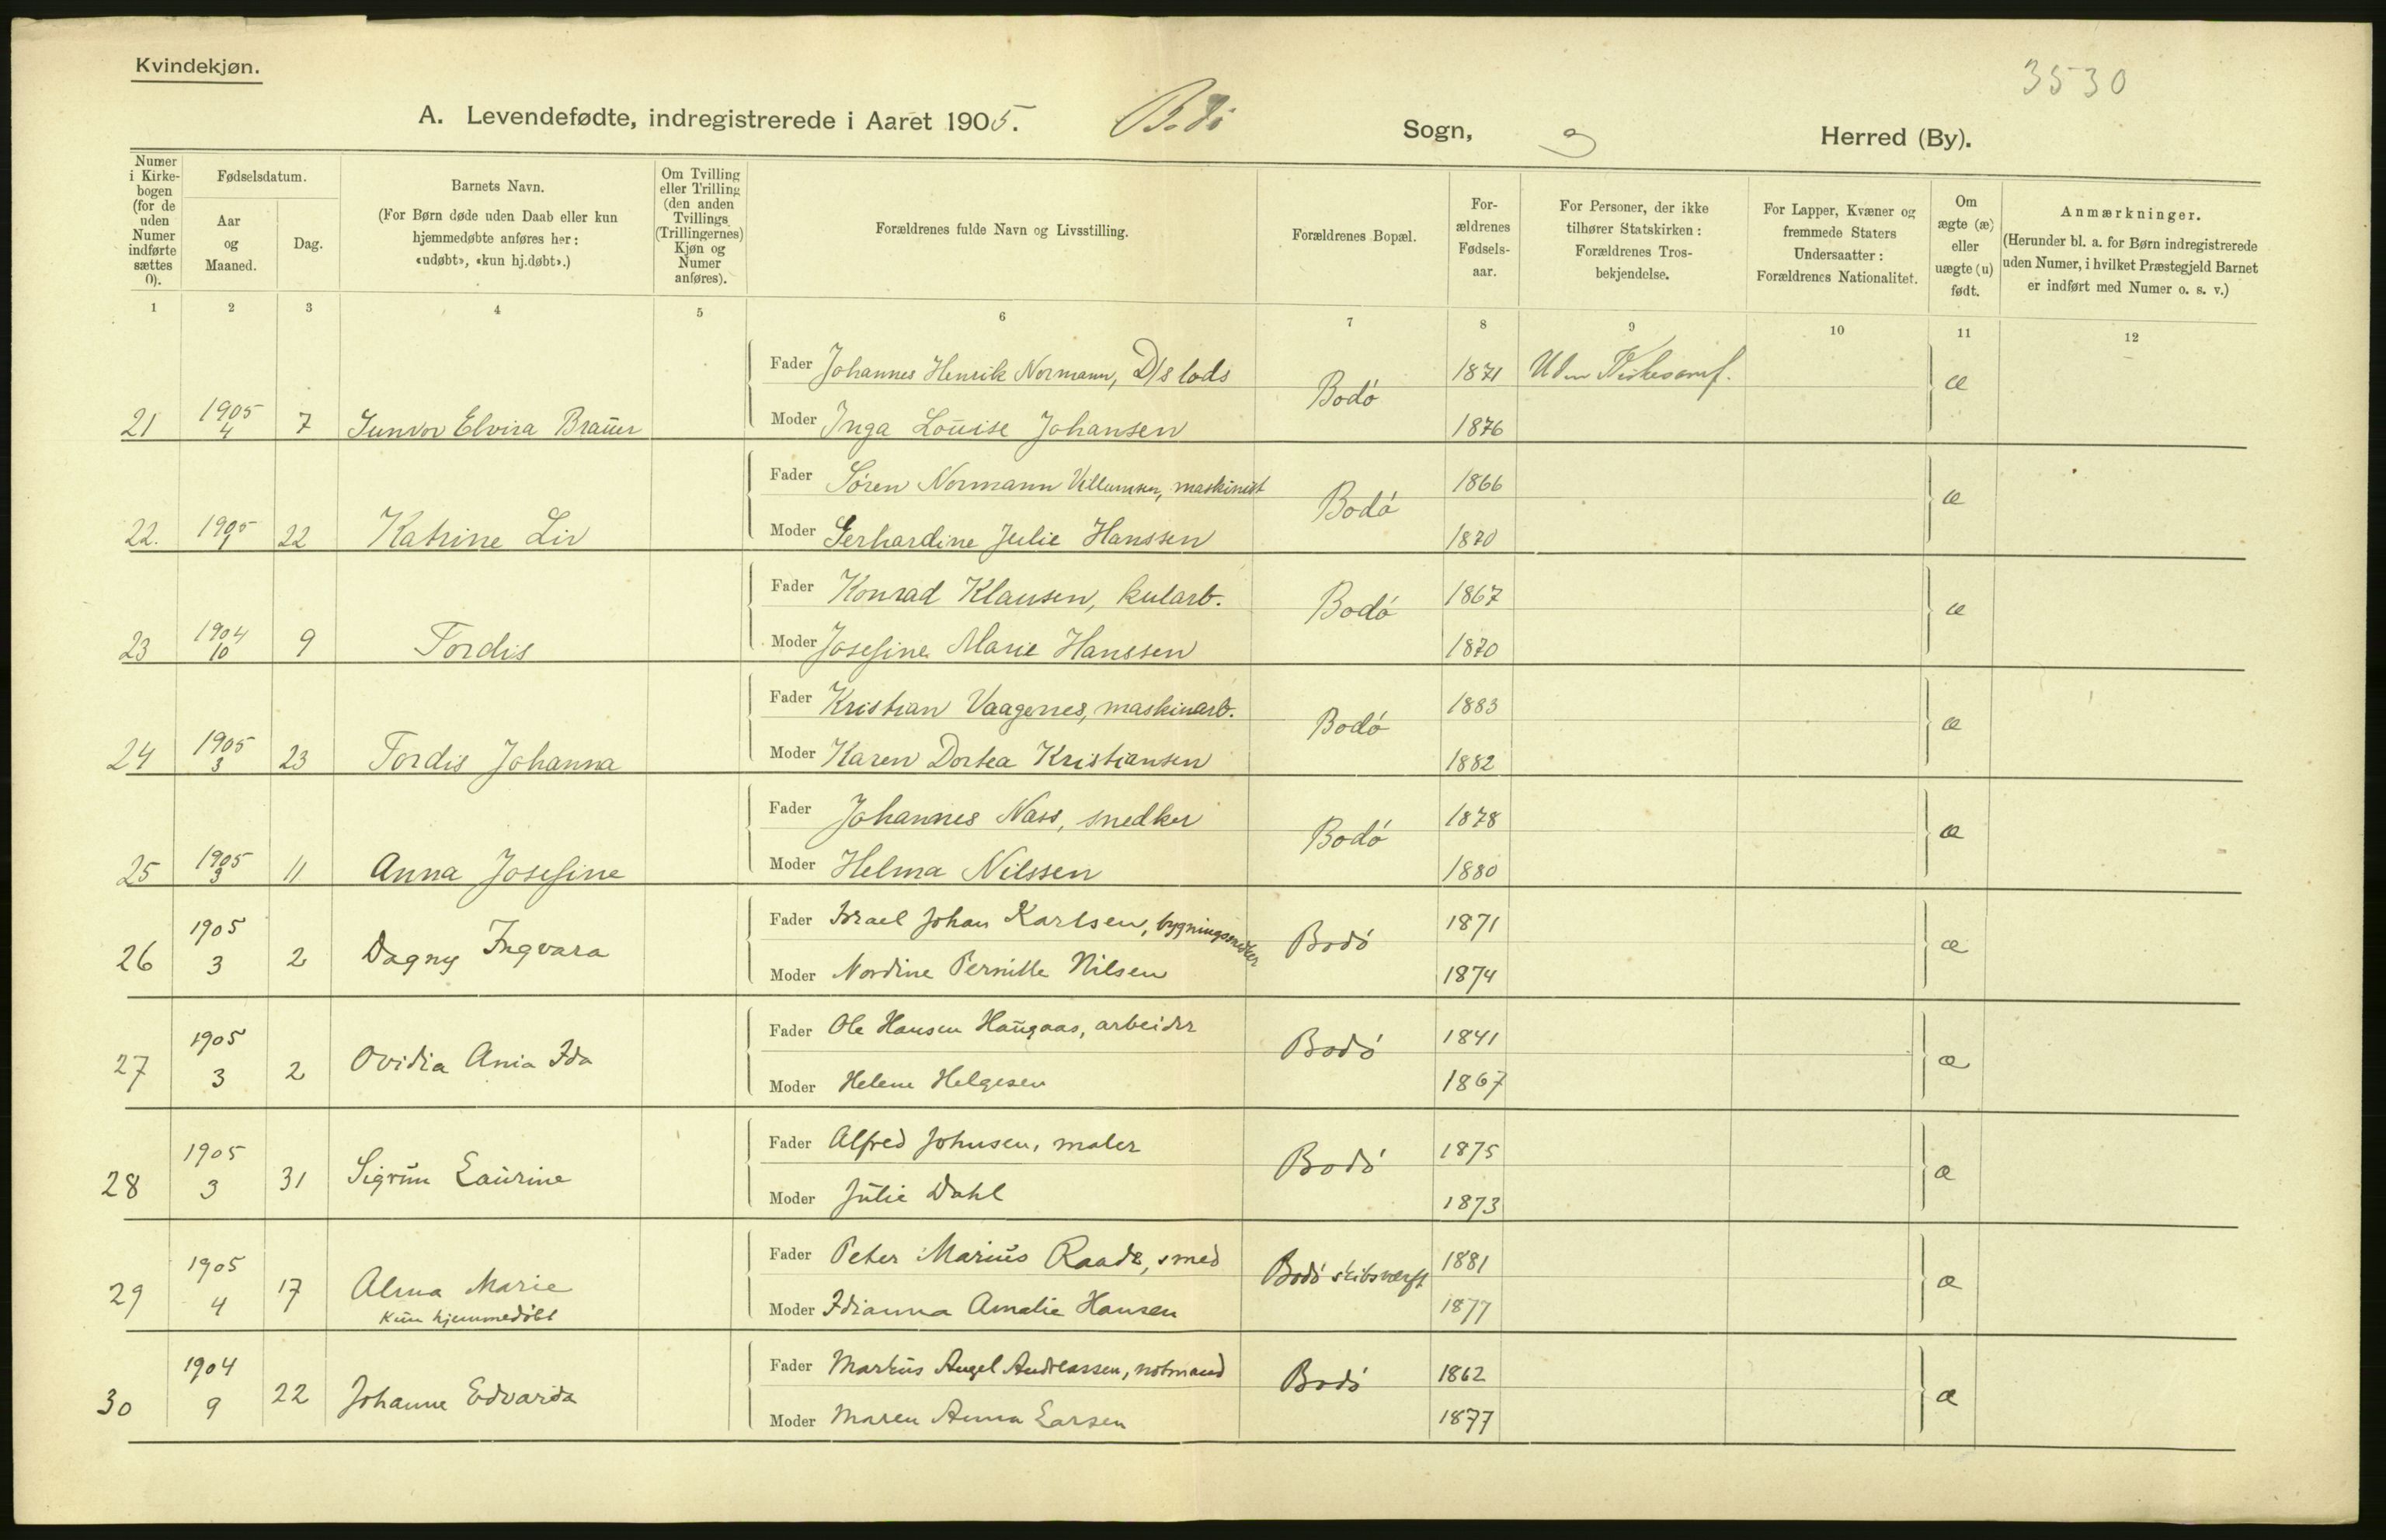 Kvindekjøn.
3530
A. Levendefødte, indregistrerede i Aaret 1905. Sogn, Herred (By).
Numer i Kirke-bogen (for de uden Numer indførte sættes 0).
Fødselsdatum.
Aar og Maaned.
Dag.
Barnets Navn.
(For Børn døde uden Daab eller kun hjemmedøbte anføres her: «udøbt», «kun hj.døbt».)
Om Tvilling eller Trilling (den anden Tvillings (Trillingernes) Kjøn og Numer anføres).
Forældrenes fulde Navn og Livsstilling.
Forældrenes Bopæl.
For-ældrenes Fødsels-aar.
For Personer, der ikke tilhører Statskirken: Forældrenes Tros-bekjendelse.
For Lapper, Kvæner og fremmede Staters Undersaatter: Forældrenes Nationalitet.
Om ægte (æ) eller uægte (u) født.
Anmærkninger.
(Herunder bl. a. for Børn indregistrerede uden Numer, i hvilket Præstegjeld Barnet er indført med Numer o. s. v.)
1 2 3 4 5 6 7 8 9 10 11 12
Fader Johannes Henrik Normann, D/s lods Bodó 1871 æ
21 1905 4 7 Gunvor Elvira Braŭer Moder Inga Loŭise Johansen 1876
Fader Sören Normann Villumsen, maskinist Bodó 1866 æ
22. 1905 22 Katrine Liv Moder Gerhardine Julie Hanssen 1870
Fader Konrad Klausen, kularb. Bodó 1867 æ
23 1904 10 9 Tordis Moder Josefine Marie Hanssen 1870
Fader Kristian Vaagenes, maskinarb. Bodó 1883 æ
24 1905 3 23 Tordis Johanna Moder Karen Dortea Kristiansen 1882
Fader Johannes Nass, snedker Bodó 1878 æ
25 1905 3 11 Anna Josefine Moder Helma Nilssen 1880
Fader Israel Johan Karlsen, bygningssnedker Bodó 1871 æ
26 1905 3 2 Dagny Ingvara Moder Nordine Pernille Nilsen 1874
Fader Ole Hansen Haŭgaas, arbeider Bodó 1841 æ
27 1905 3 2 Ovidia Ania Ida Moder Helene Helgesen 1867
Fader Alfred Johnsen, maler Bodó 1875 æ
28 1905 3 31 Sigrŭn Laŭrine Moder Jŭlie Dahl 1873
Fader Peter Mariŭs Raade, smed Bodó skibsverft 1881 æ
29 1905 4 17 Alma Marie Moder Idianna Amalie Hansen 1877
Kŭn hjemmedöbt
Fader Markŭs Angel Andreassen, notmand Bodó 1862 æ
30 1904 9 22 Johanne Edvarda Moder Maren Anna Larsen 1877